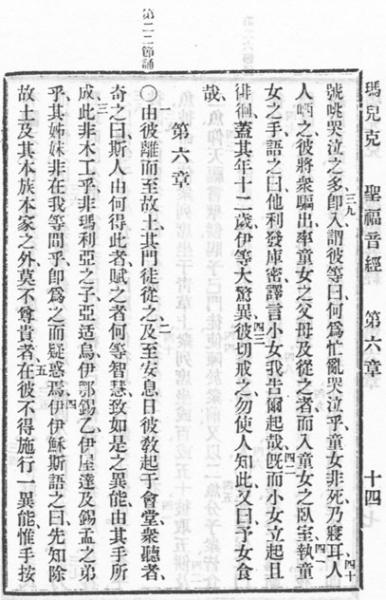 瑪兒克 聖福音經 第六章 十四
號咷哭泣之多三九卽入謂彼等曰何爲忙亂哭泣乎童女非死乃寢耳四十人
人哂之彼將衆驅出率童女之父母及從之者而入童女之臥室四一執童
女之手語之曰他利發庫密譯言小女我告爾起哉四二旣而小女立起且
徘徊蓋其年十二歲伊等大驚異四三彼切戒之勿使人知此又曰予女食
哉
第六章
第二二節誦
一〇由彼離而至故土其門徒從之二及至安息日彼敎起于會堂衆聽者
奇之曰斯人由何得此者賦之者何等智慧致如是之異能由其手所
成三此非木工乎非瑪利亞之子亞适烏伊鄂錫乙伊屋達及錫孟之弟
乎其姊妹非在我等間乎卽爲之而疑惑焉四伊伊穌斯語之曰先知除
故土及其本族本家之外莫不尊貴者五在彼不得施行一異能惟手按